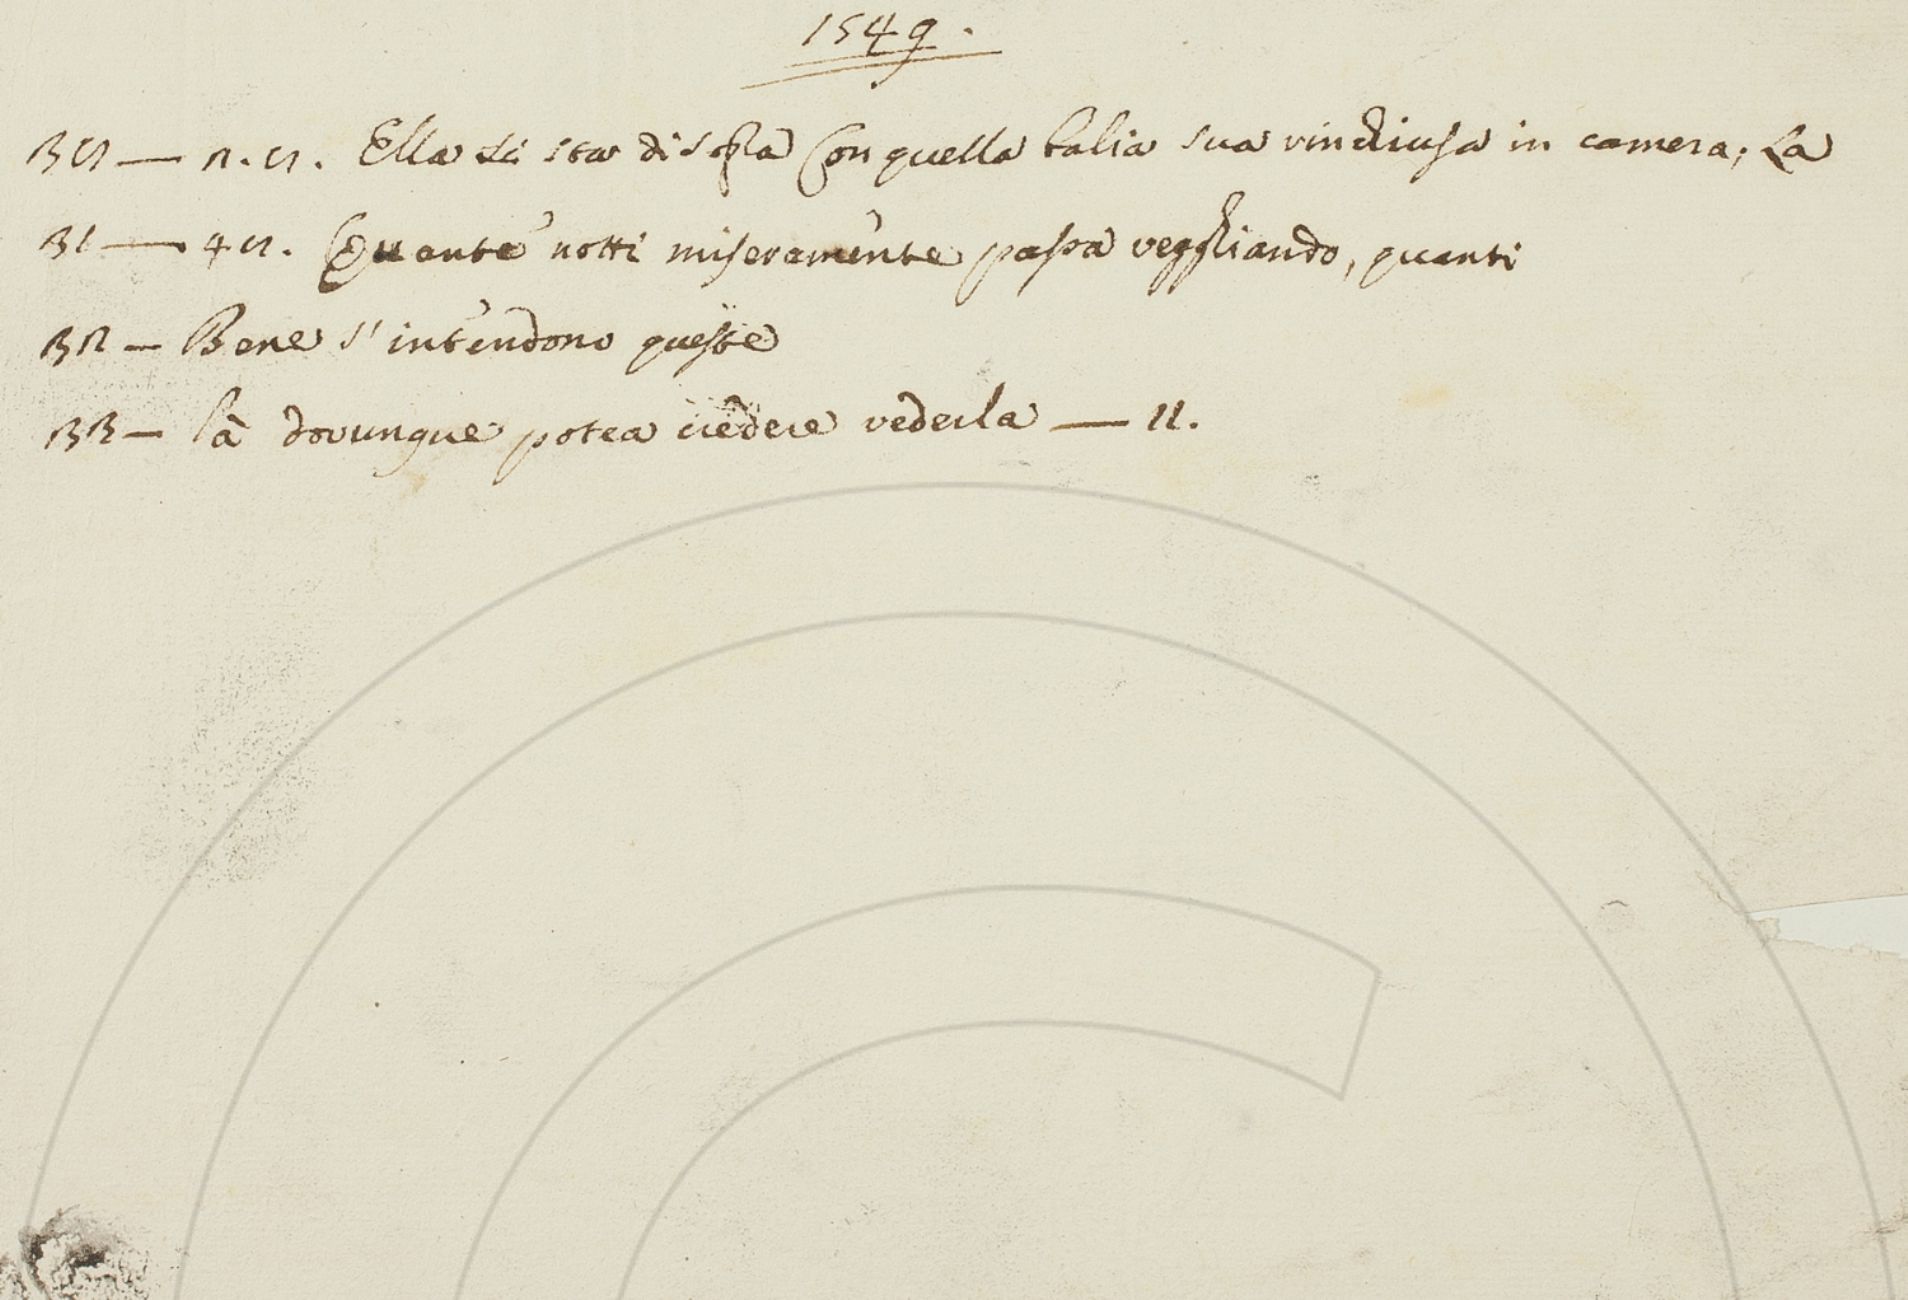 1549.
Ella si sta di sopra con quella balia sua rinchiusa in camera; La
Quante notti miseramente passa vegghiando, quanti
Bene s'intendono queste
là dovunque potea credere vederla — 11.